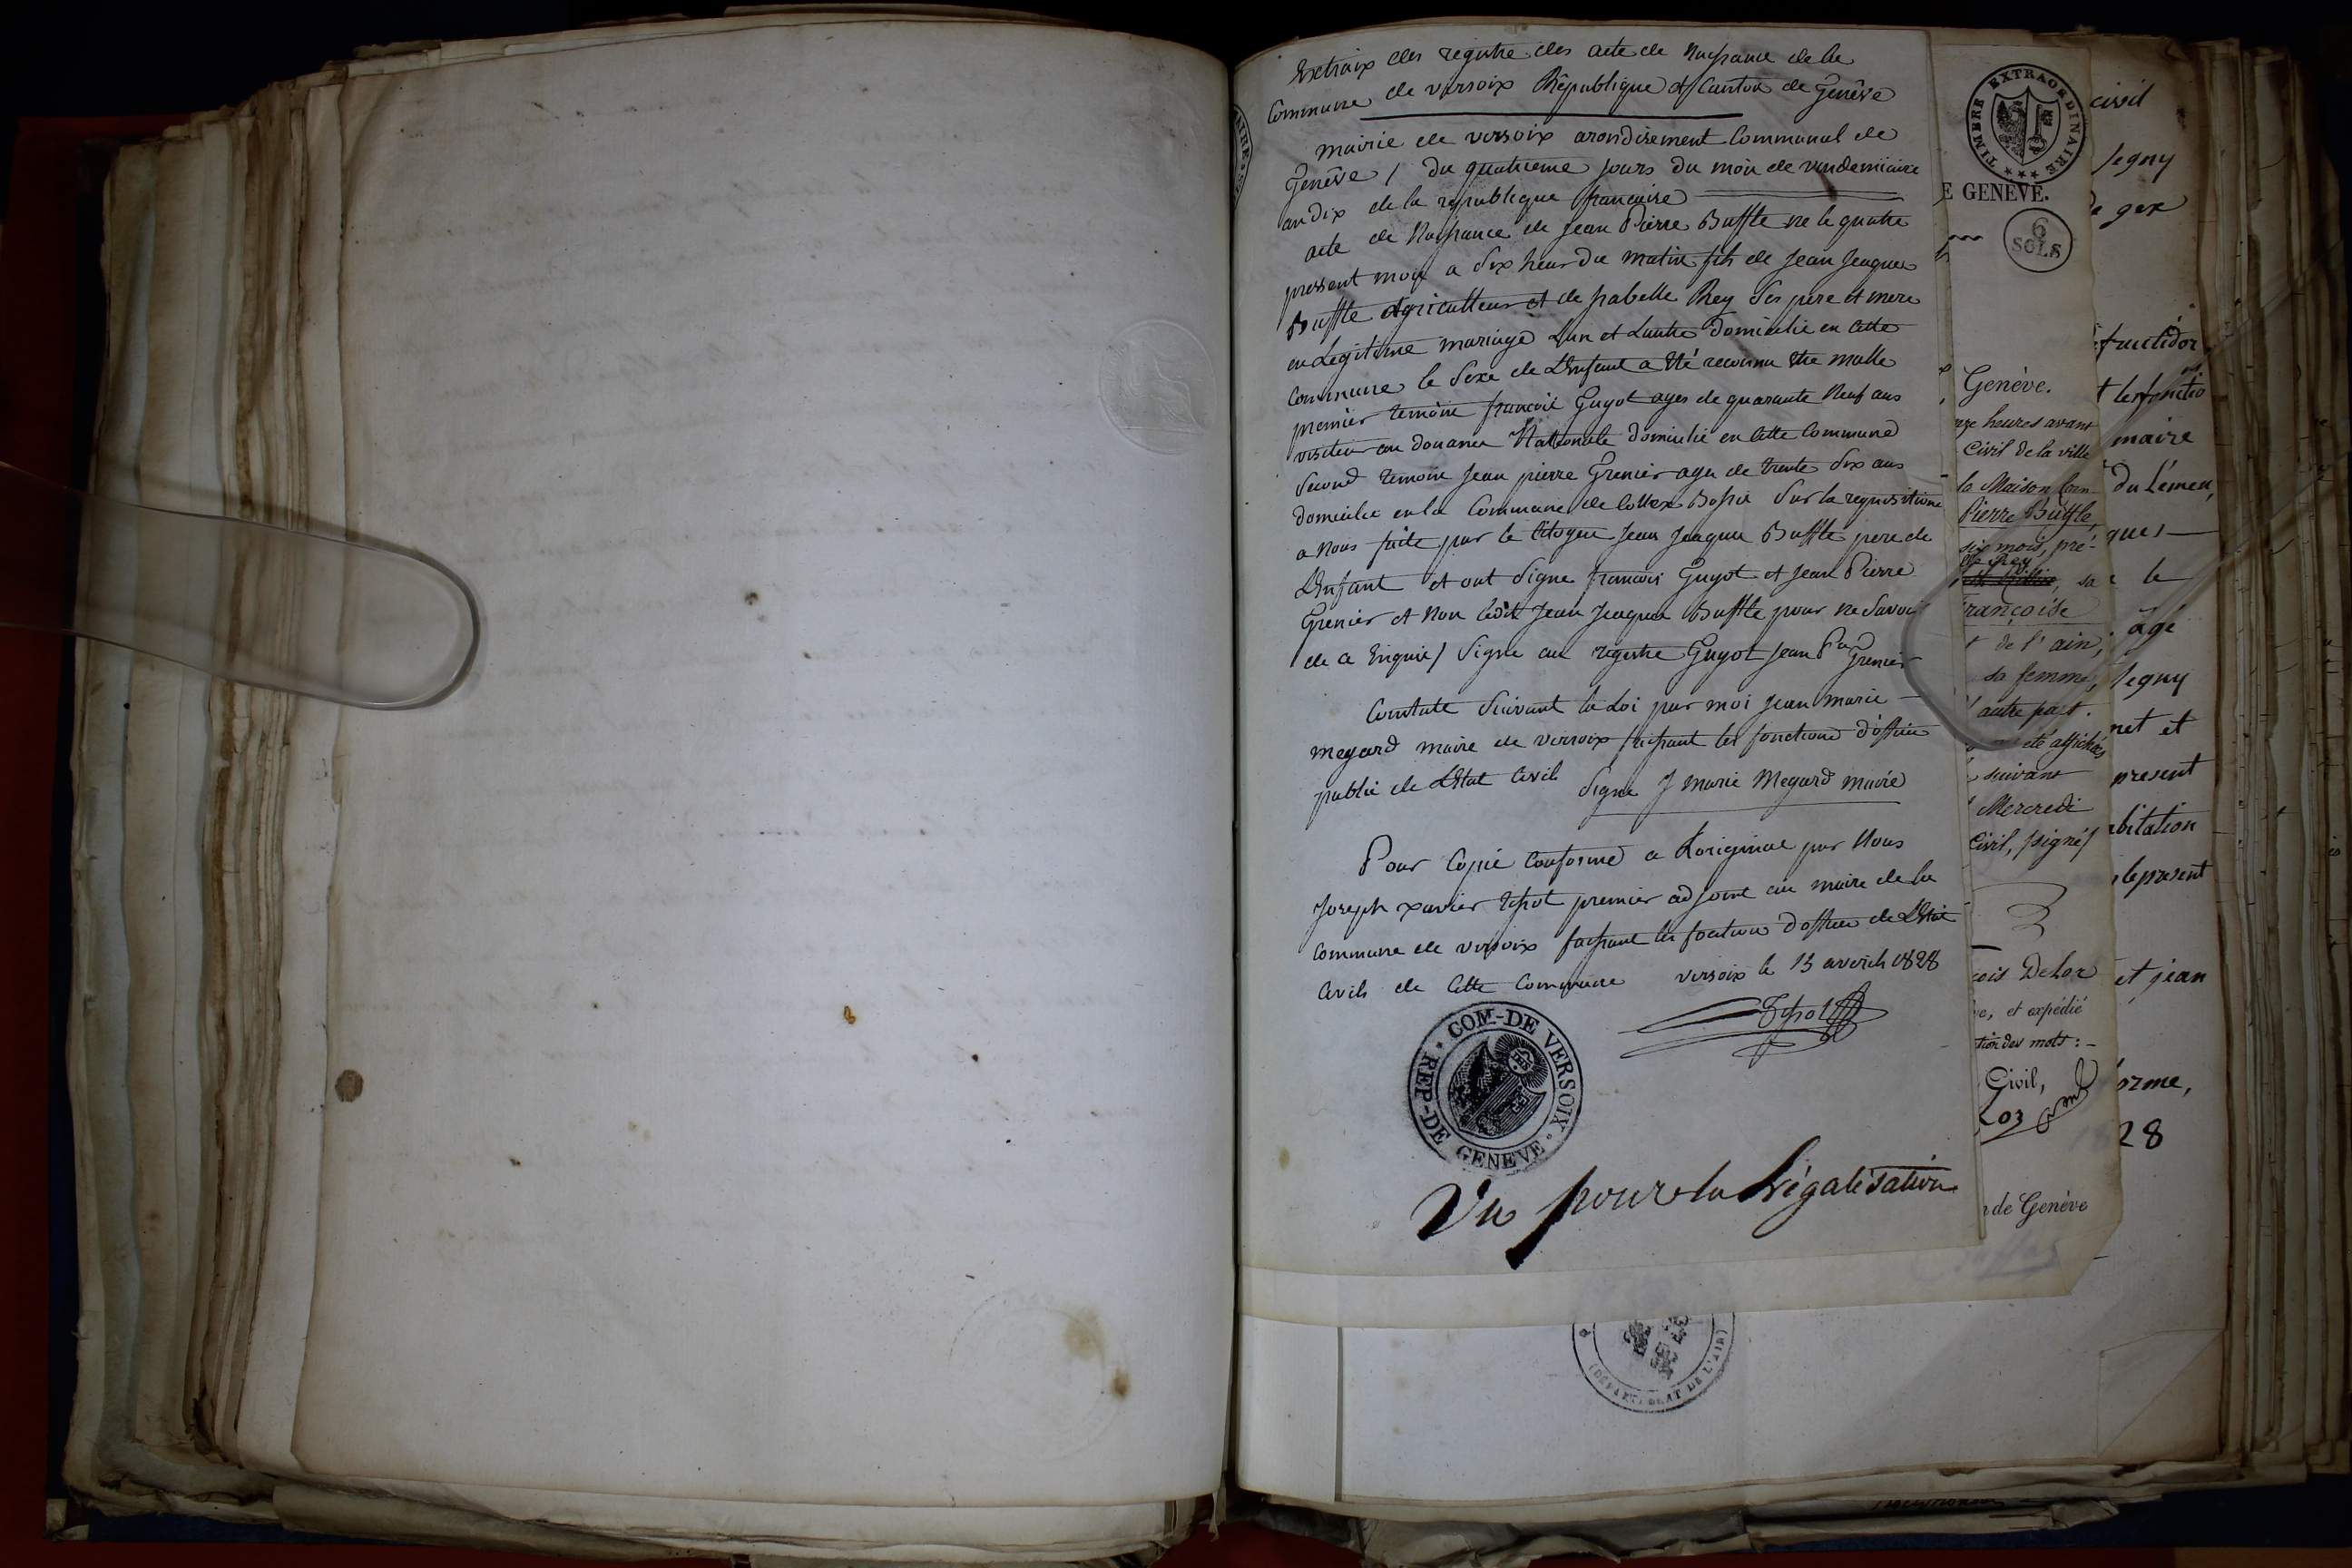 Extraix des registre des acte de Naissance de la
Commune de versoix République et Canton de Genêve
mairie de versoix arondisement Communal de
Genêve / du quatrieme jours du mois de vendemiaire
an dix de la republique francaise
acte de Naissance de Jean Pierre Buffle ne le quatre
pressent mois a Six heur du matin fils de Jean Jaques
Buffle Agriculteur et de Isabelle Rey Ses pere et mere
en Legitime mariage Lun et Lautre domicilie en Cette
Commune le Sexe de L'Enfant a Eté reconnu Etre malle
premier temoin francois Guyot ages de quarante Neuf ans
visiteur au douanes Nationale domicilie en Cette Commune
Second temoin Jean pierre Grenier age de trente Six ans
domicilie en la Commune de Collex Bossie Sur la requisitione
a Nous faite par le Citoyen Jean Jaques Buffle pere de
L'Enfant et ont Signe francois Guyot et Jean Pierre
Grenier et Non ledit Jean Jaques Buffle pour ne Savoir
de a Enquie / Signe au registre Guyot Jean Pre Grenier
Constate Suivant la Loi par moi Jean marie
megard maire de versoix faissant les fonctions d'officier
public de L'Etat Civil Signe J marie Megard maire
Pour Copie Conforme a Loriginal par Nous
Joseph xavier premier adjoint au maire de la
Commune de versoix faissant les foctions d'officier de L'Etat
Civils de Cette Commune versoix le 13 avrih 1828
COM-DE VERSOIX
REP-DE GENEVE
Vu pour la Légalisation
TIMBRE EXTRAORDINAIRE
E GENÈVE.
6
SOLS
Genève.
heures avant
Civil de la ville
la Maison
Pierre Buffle,
six mois, pré-
de Rey
sa
rançoise
de l'ain,
sa femme,
autre part.
été affichés
suivant
Mercredi
Civil, signé/
çois Delor
et expédié
tion des mots :
Civil,
Lor
de Genève
civil
legny
gex
fructidor
les fonctio
maire
du Léman,
ques
le
âgé
legny
net et
present
bitation
le present
et jean
orme,
28
(DÉPARTEMENT DE L'AIN)